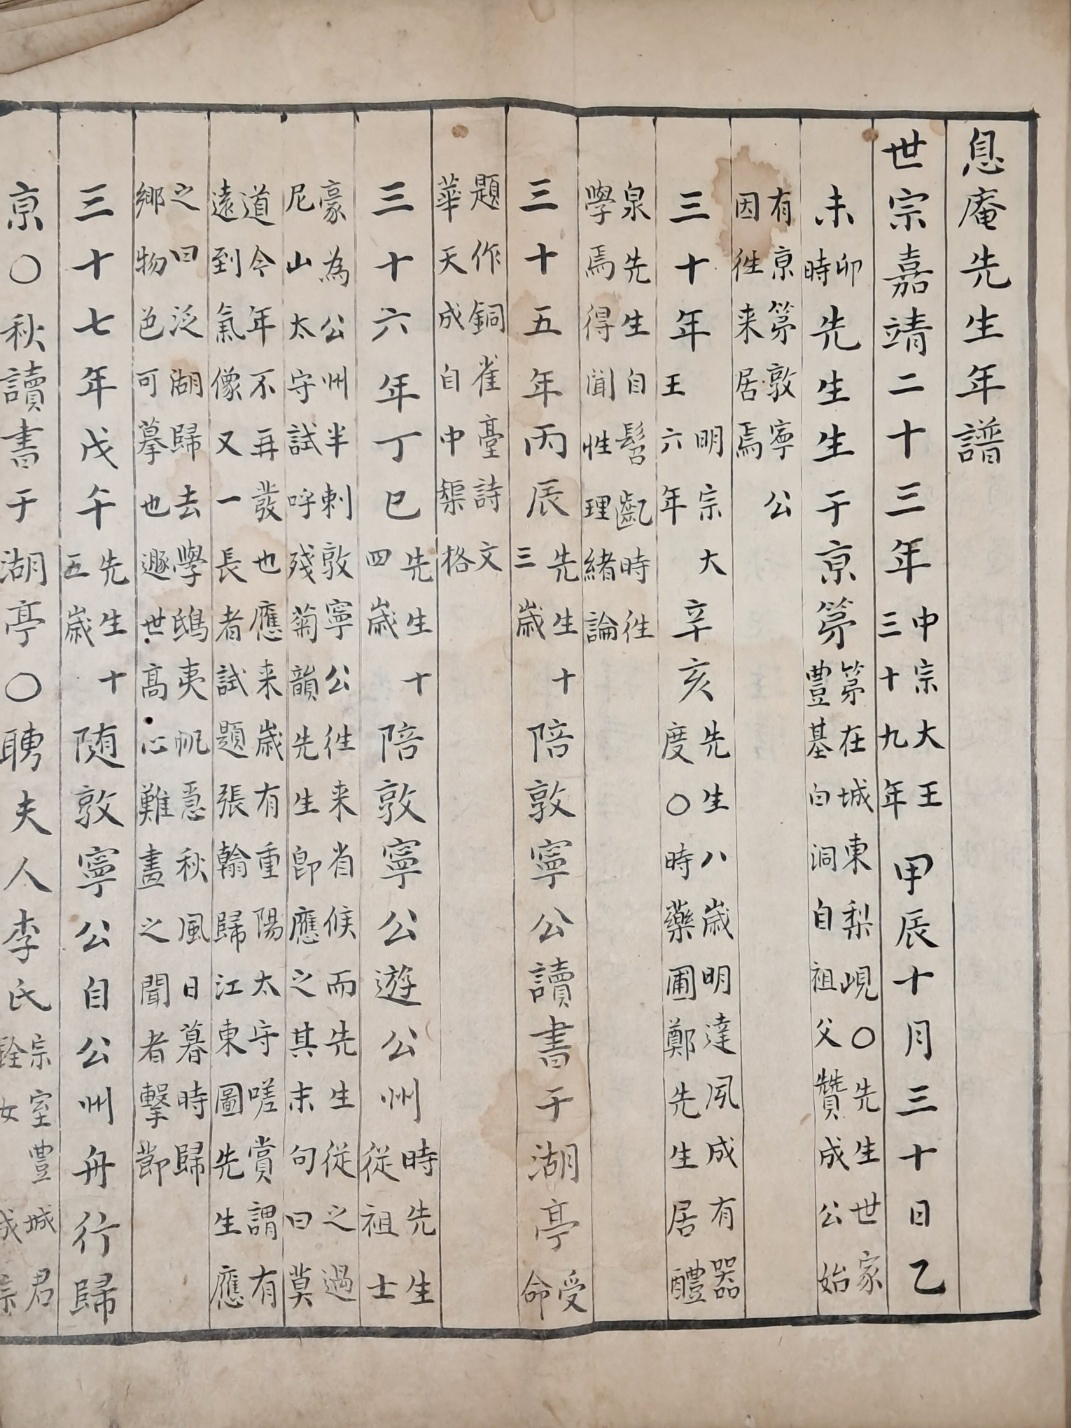 息庵先生年譜
世宗嘉靖二十三年中宗大王三十九年甲辰十月三十日乙
未卯時先生生于京第第在城東梨峴○先生世家豐基白洞自祖父贊成公始
有京第敦寧公因往来居焉
三十年明宗大王六年辛亥先生八歲明達夙成有器度○時藥圃鄭先生居醴
泉先生自髫齔時往學焉得聞性理緒論
三十五年丙辰先生十三歲陪敦寧公讀書于湖亭受命
題作銅雀臺詩文華天成自中榘格
三十六年丁巳先生十四歲陪敦寧公遊公州時先生從祖士
豪為公州半刺敦寧公往来省候而先生從之過尼山太守試呼殘菊韻先生卽應之其末句曰莫
道今年不再發也應来歲有重陽太守嗟賞謂有遠到氣像又一長者試題張翰歸江東圖先生應
之曰泛湖歸去學鴟夷帆急秋風日暮時歸鄉物色可摹也遯世高心難畫之聞者擊節
三十七年戊午先生十五歲随敦寧公自公州舟行歸
京○秋讀書于湖亭○聘夫人李氏宗室豐城君銓女成宗